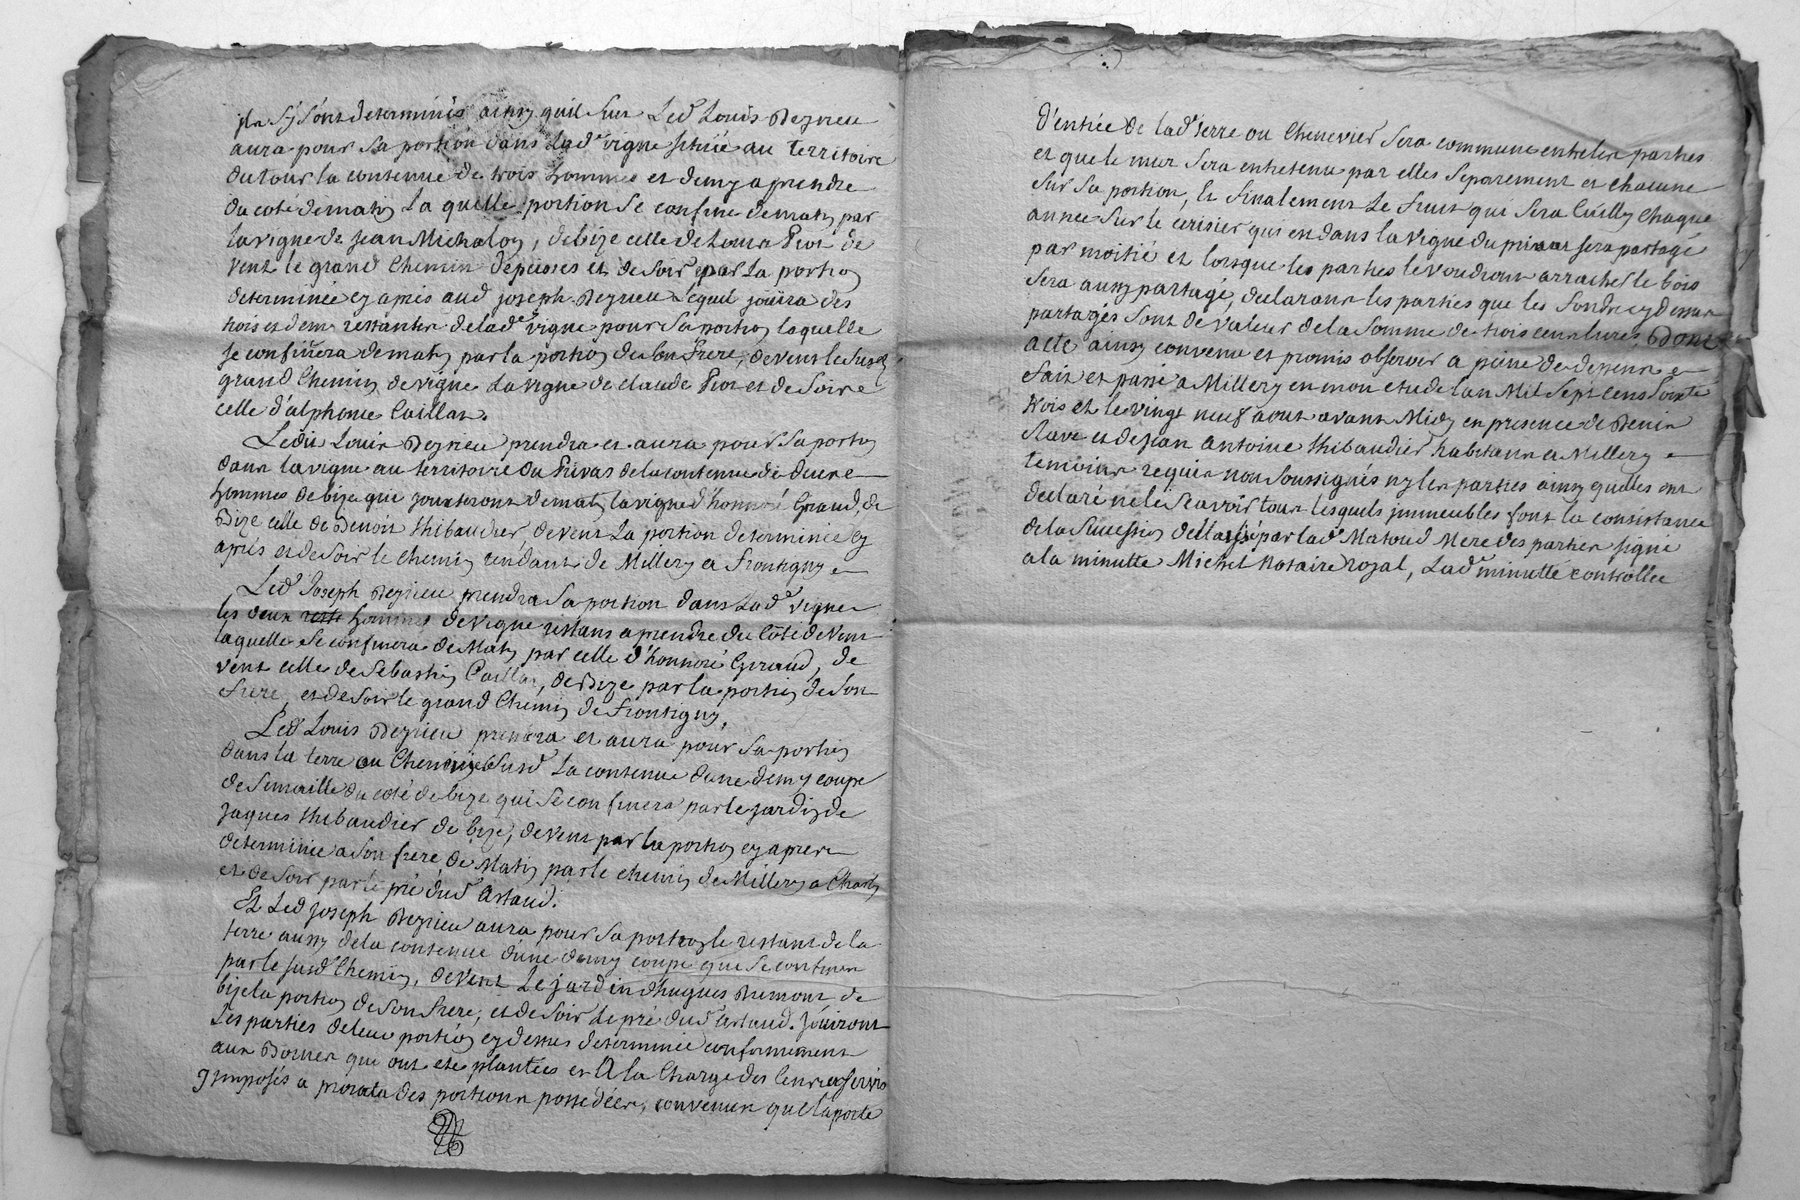 sy sont determinés ainsy quil suit Led. Louis Deyrieu
aura pour sa portion dans lad.e vigne située au Territoire
du tour la contenue de trois hommes et demy a prendre
du coté de matin La quelle portion se confine de matin par
la vigne de Jean Michalon, de bize celle de Louis Piot de
vent le grand Chemin et de soir par La portion
determinée cy aprés aud Joseph Deyrieu Lequel joüira des
trois et demi restantes de lad.e vigne pour sa portion laquelle
se confinera de matin par la portion de son frere, de vent le susd
grand Chemin de vigne La vigne de claude Piot et de soire
celle d'alphonse Caillat.
Ledit Louis Deyrieu prendra et aura pour sa portion
dans la vigne au territoire du Privas de la contenue de deux
hommes de bize que jouxteront de matin la vigne d'honnoré Giraud, de
Bize celle de Benoit thibaudier, de vent La portion determinée cy
aprés et de soir le chemin tendant de Millery a Frontigny
Led. Joseph Deyrieu prendra sa portion dans Lad.e vigne
les deux hommes de vigne restans a prendre du Côté de vent
laquelle se confinera de Matin par celle d'honnoré Giraud, de
vent celle de Sebastien Caillat, de Bize par la portion de son
frere, et de soir le grand Chemin de Frontigny.
Led. Louis Deyrieu prendra et aura pour sa portion
dans la terre ou Chenevier susd La contenue d'une demy coupe
de semaille du coté de bize qui se confinera par le jardin de
Jaques thibaudier de bize, de vent par la portion cy apres
determinée a son frere de Matin par le chemin de Millery a Charly
et de soir par le pré dud. Artaud.
Et Led Joseph Deyrieu aura pour sa portion le restant de la
terre aussy de la contenue d'une demy coupe que se confinera
par le susd Chemin, de vent Le jardin d'hugues Dumont de
bize la portion de son frere, et de soir Le pré dud. Artaud. Joüiront
Les parties de leur portion cy dessus determinée conformement
aux Bornes que ont eté plantées et A la Charge des Cens et servis
jmposés a prorata des portions possedées, convenu que la porte
d'entrée de lad.e terre ou Chenevier sera commune entre les parties
et que le mur sera entretenu par elles separement et chacune
sur sa portion, Et finalement Le fruit qui sera Cüilly Chaque
année sur le cerisier qui en dans la vigne du privat sera partagé
par moitié et lorsque les parties le voudront arracher le bois
sera aussy partagé, declarant les parties que les fonds cy dessus
partagés sont de valeur de la somme de trois cens livres Dont
acte ainsy convenu et promis observer a peine de depens
fait et passé a Millery en mon etude lan Mil sept cens soixte
trois et le vingt neuf aout avant Midy en presence de Benoit
et de Jean Antoine thibaudier habitans a Millery
temoins requis non soussignés ny les parties ainsy quelles ont
declaré ne le scavoir tous lesquels jmmeubles font la consistance
de la succession par lad. Matoud Mere des parties signé
a la minutte Michel Notaire royal, Lad.e minutte controllée